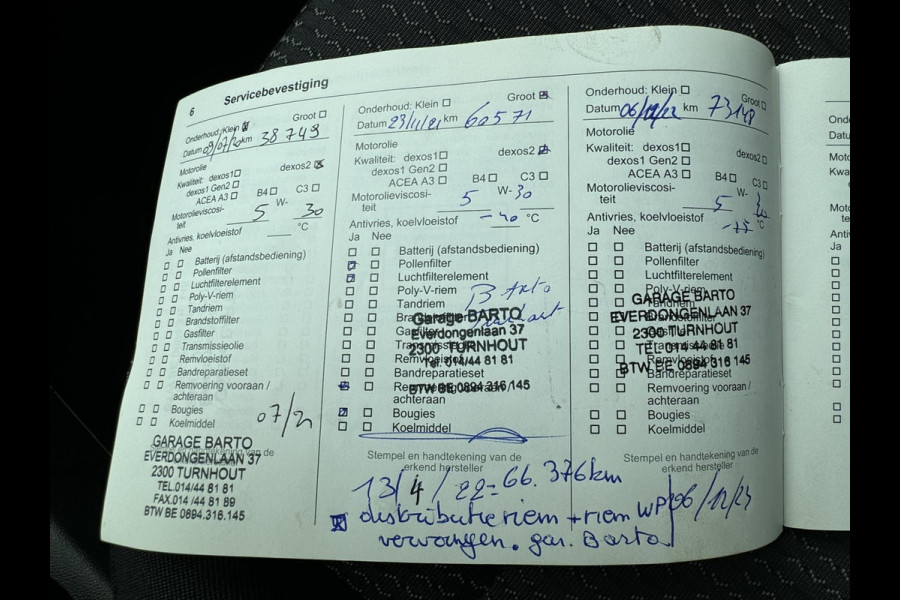 6 Servicebevestiging
Onderhoud: Klein Groot
Datum 09/07/20 km 38 749
Motorolie
Kwaliteit: dexos1 dexos2
dexos1 Gen2
ACEA A3 B4 C3
Motorolieviscosi-
teit 5 W- 30
Antivries, koelvloeistof °C
Ja Nee
Batterij (afstandsbediening)
Pollenfilter
Luchtfilterelement
Poly-V-riem
Tandriem
Brandstoffilter
Gasfilter
Transmissieolie
Remvloeistof
Bandreparatieset
Remvoering vooraan /
achteraan
Bougies
Koelmiddel
GARAGE BARTO
EVERDONGENLAAN 37
2300 TURNHOUT
TEL.014/44 81 81
FAX.014 /44 81 89
BTW BE 0894.316.145
Onderhoud: Klein Groot
Datum 23/11/21 km 60571
Motorolie
Kwaliteit: dexos1 dexos2
dexos1 Gen2
ACEA A3 B4 C3
Motorolieviscosi-
teit 5 W- 30
Antivries, koelvloeistof -40 °C
Ja Nee
Batterij (afstandsbediening)
Pollenfilter
Luchtfilterelement
Poly-V-riem
Tandriem
Barto
Garage BARTO
Everdongenlaan 37
2300 TURNHOUT
Tel. 014/44 81 81
Bandreparatieset
BTW BE 0894.316.145
achteraan
Bougies
Koelmiddel
Stempel en handtekening van de
erkend hersteller
13/4/22 = 66.376 km
distributieriem + riem WP
vervangen. gar. Barto
Onderhoud: Klein Groot
Datum km 73148
Motorolie
Kwaliteit: dexos1 dexos2
dexos1 Gen2
ACEA A3 B4 C3
Motorolieviscosi-
teit 5 W- 30
Antivries, koelvloeistof °C
Ja Nee
Batterij (afstandsbediening)
Pollenfilter
Luchtfilterelement
Poly-V-riem
GARAGE BARTO
EVERDONGENLAAN 37
2300 TURNHOUT
TEL 014 44 81 81
BTW BE 0894 316 145
Bandreparatieset
Remvoering vooraan /
achteraan
Bougies
Koelmiddel
Stempel en handtekening van de
erkend hersteller